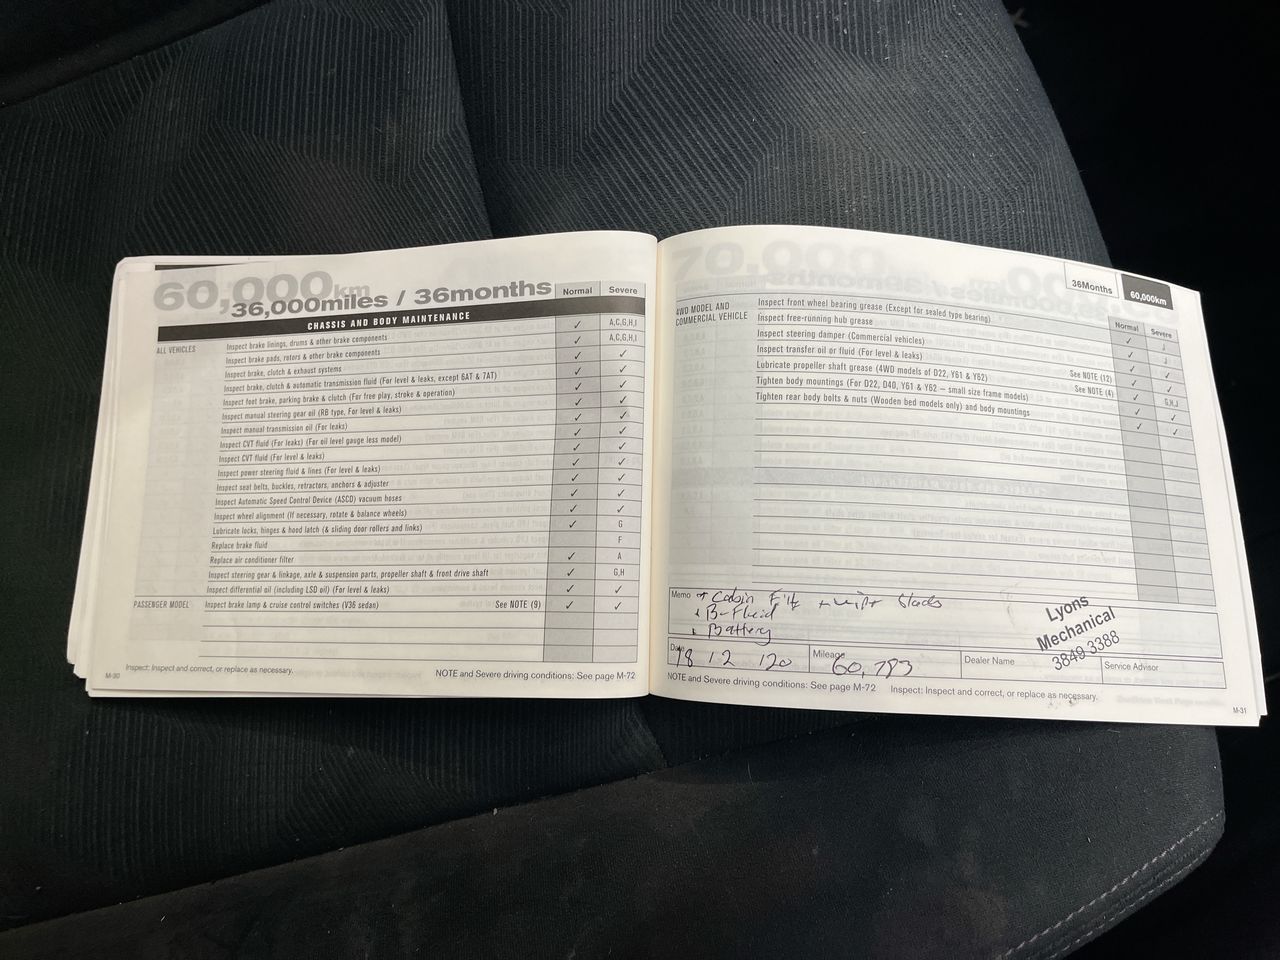 60,000km
36,000miles / 36months
Normal Severe
CHASSIS AND BODY MAINTENANCE
ALL VEHICLES
Inspect brake linings, drums & other brake components ✓ A,C,G,H,I
Inspect brake pads, rotors & other brake components ✓ A,C,G,H,I
Inspect brake, clutch & exhaust systems ✓ ✓
Inspect brake, clutch & automatic transmission fluid (For level & leaks, except 6AT & 7AT) ✓ ✓
Inspect foot brake, parking brake & clutch (For free play, stroke & operation) ✓ ✓
Inspect manual steering gear oil (RB type, For level & leaks) ✓ ✓
Inspect manual transmission oil (For leaks) ✓ ✓
Inspect CVT fluid (For leaks) (For oil level gauge less model) ✓ ✓
Inspect CVT fluid (For level & leaks) ✓ ✓
Inspect power steering fluid & lines (For level & leaks) ✓ ✓
Inspect seat belts, buckles, retractors, anchors & adjuster ✓ ✓
Inspect Automatic Speed Control Device (ASCD) vacuum hoses ✓ ✓
Inspect wheel alignment (If necessary, rotate & balance wheels) ✓ ✓
Lubricate locks, hinges & hood latch (& sliding door rollers and links) ✓ G
Replace brake fluid F
Replace air conditioner filter ✓ A
Inspect steering gear & linkage, axle & suspension parts, propeller shaft & front drive shaft ✓ G,H
Inspect differential oil (including LSD oil) (For level & leaks) ✓ ✓
PASSENGER MODEL Inspect brake lamp & cruise control switches (V36 sedan) See NOTE (9) ✓ ✓
Inspect: Inspect and correct, or replace as necessary.
NOTE and Severe driving conditions: See page M-72
M-30
70,000
36Months 60,000km
Normal Severe
4WD MODEL AND COMMERCIAL VEHICLE
Inspect front wheel bearing grease (Except for sealed type bearing) ✓ J
Inspect free-running hub grease ✓ J
Inspect steering damper (Commercial vehicles) ✓ ✓
Inspect transfer oil or fluid (For level & leaks) See NOTE (12) ✓ ✓
Lubricate propeller shaft grease (4WD models of D22, Y61 & Y62) See NOTE (4) ✓ G,H,J
Tighten body mountings (For D22, D40, Y61 & Y62 – small size frame models) ✓ ✓
Tighten rear body bolts & nuts (Wooden bed models only) and body mountings ✓ ✓
Memo + Cabin
B-Fluid
Battery
Lyons
Mechanical
3849 3388
Date 18 12 20 Mileage 60,783 Dealer Name Service Advisor
NOTE and Severe driving conditions: See page M-72 Inspect: Inspect and correct, or replace as necessary.
M-31